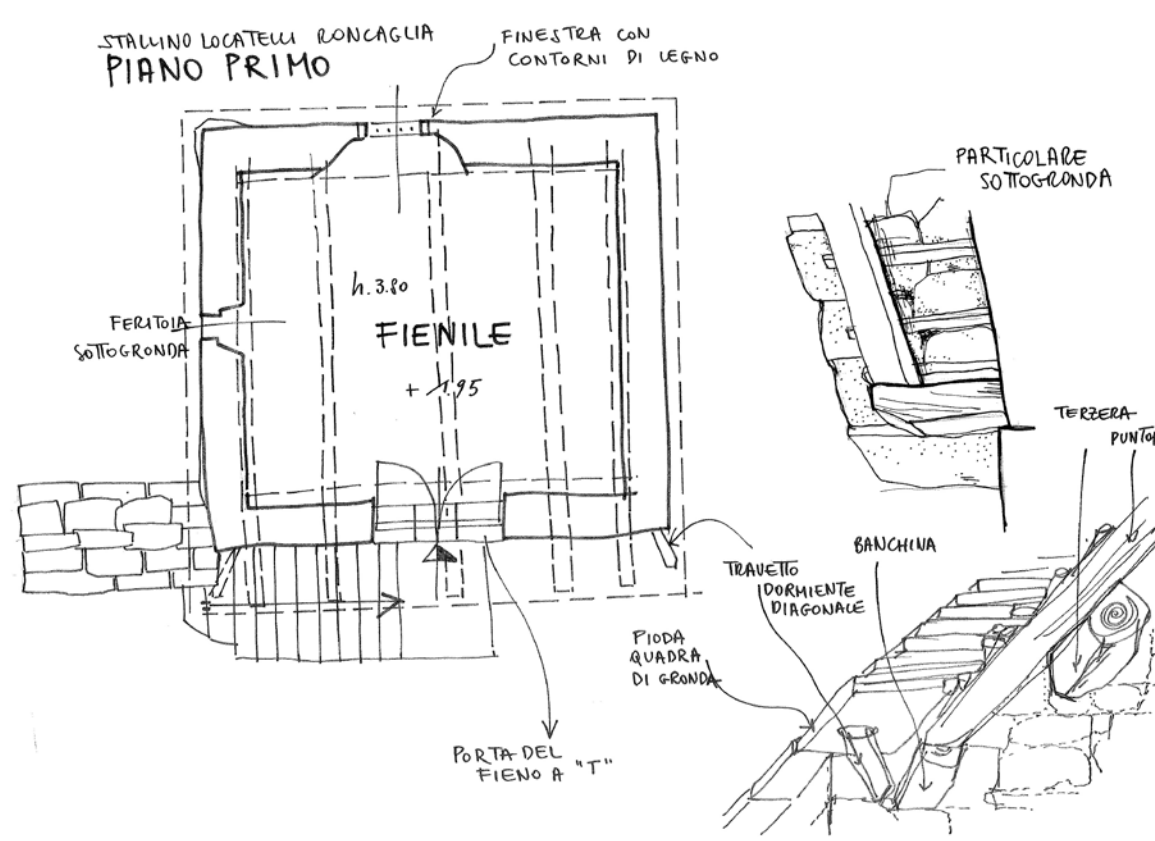 STALLINO LOCATELLI RONCAGLIA
PIANO PRIMO
FINESTRA CON
CONTORNI DI LEGNO
PARTICOLARE
SOTTOGRONDA
h. 3.80
FERITOIA
SOTTOGRONDA
FIENILE
+ 1.95
TERZERA
BANCHINA
TRAVETTO
DORMIENTE
DIAGONALE
PIODA
QUADRA
DI GRONDA
PORTA DEL
FIENO A "T"